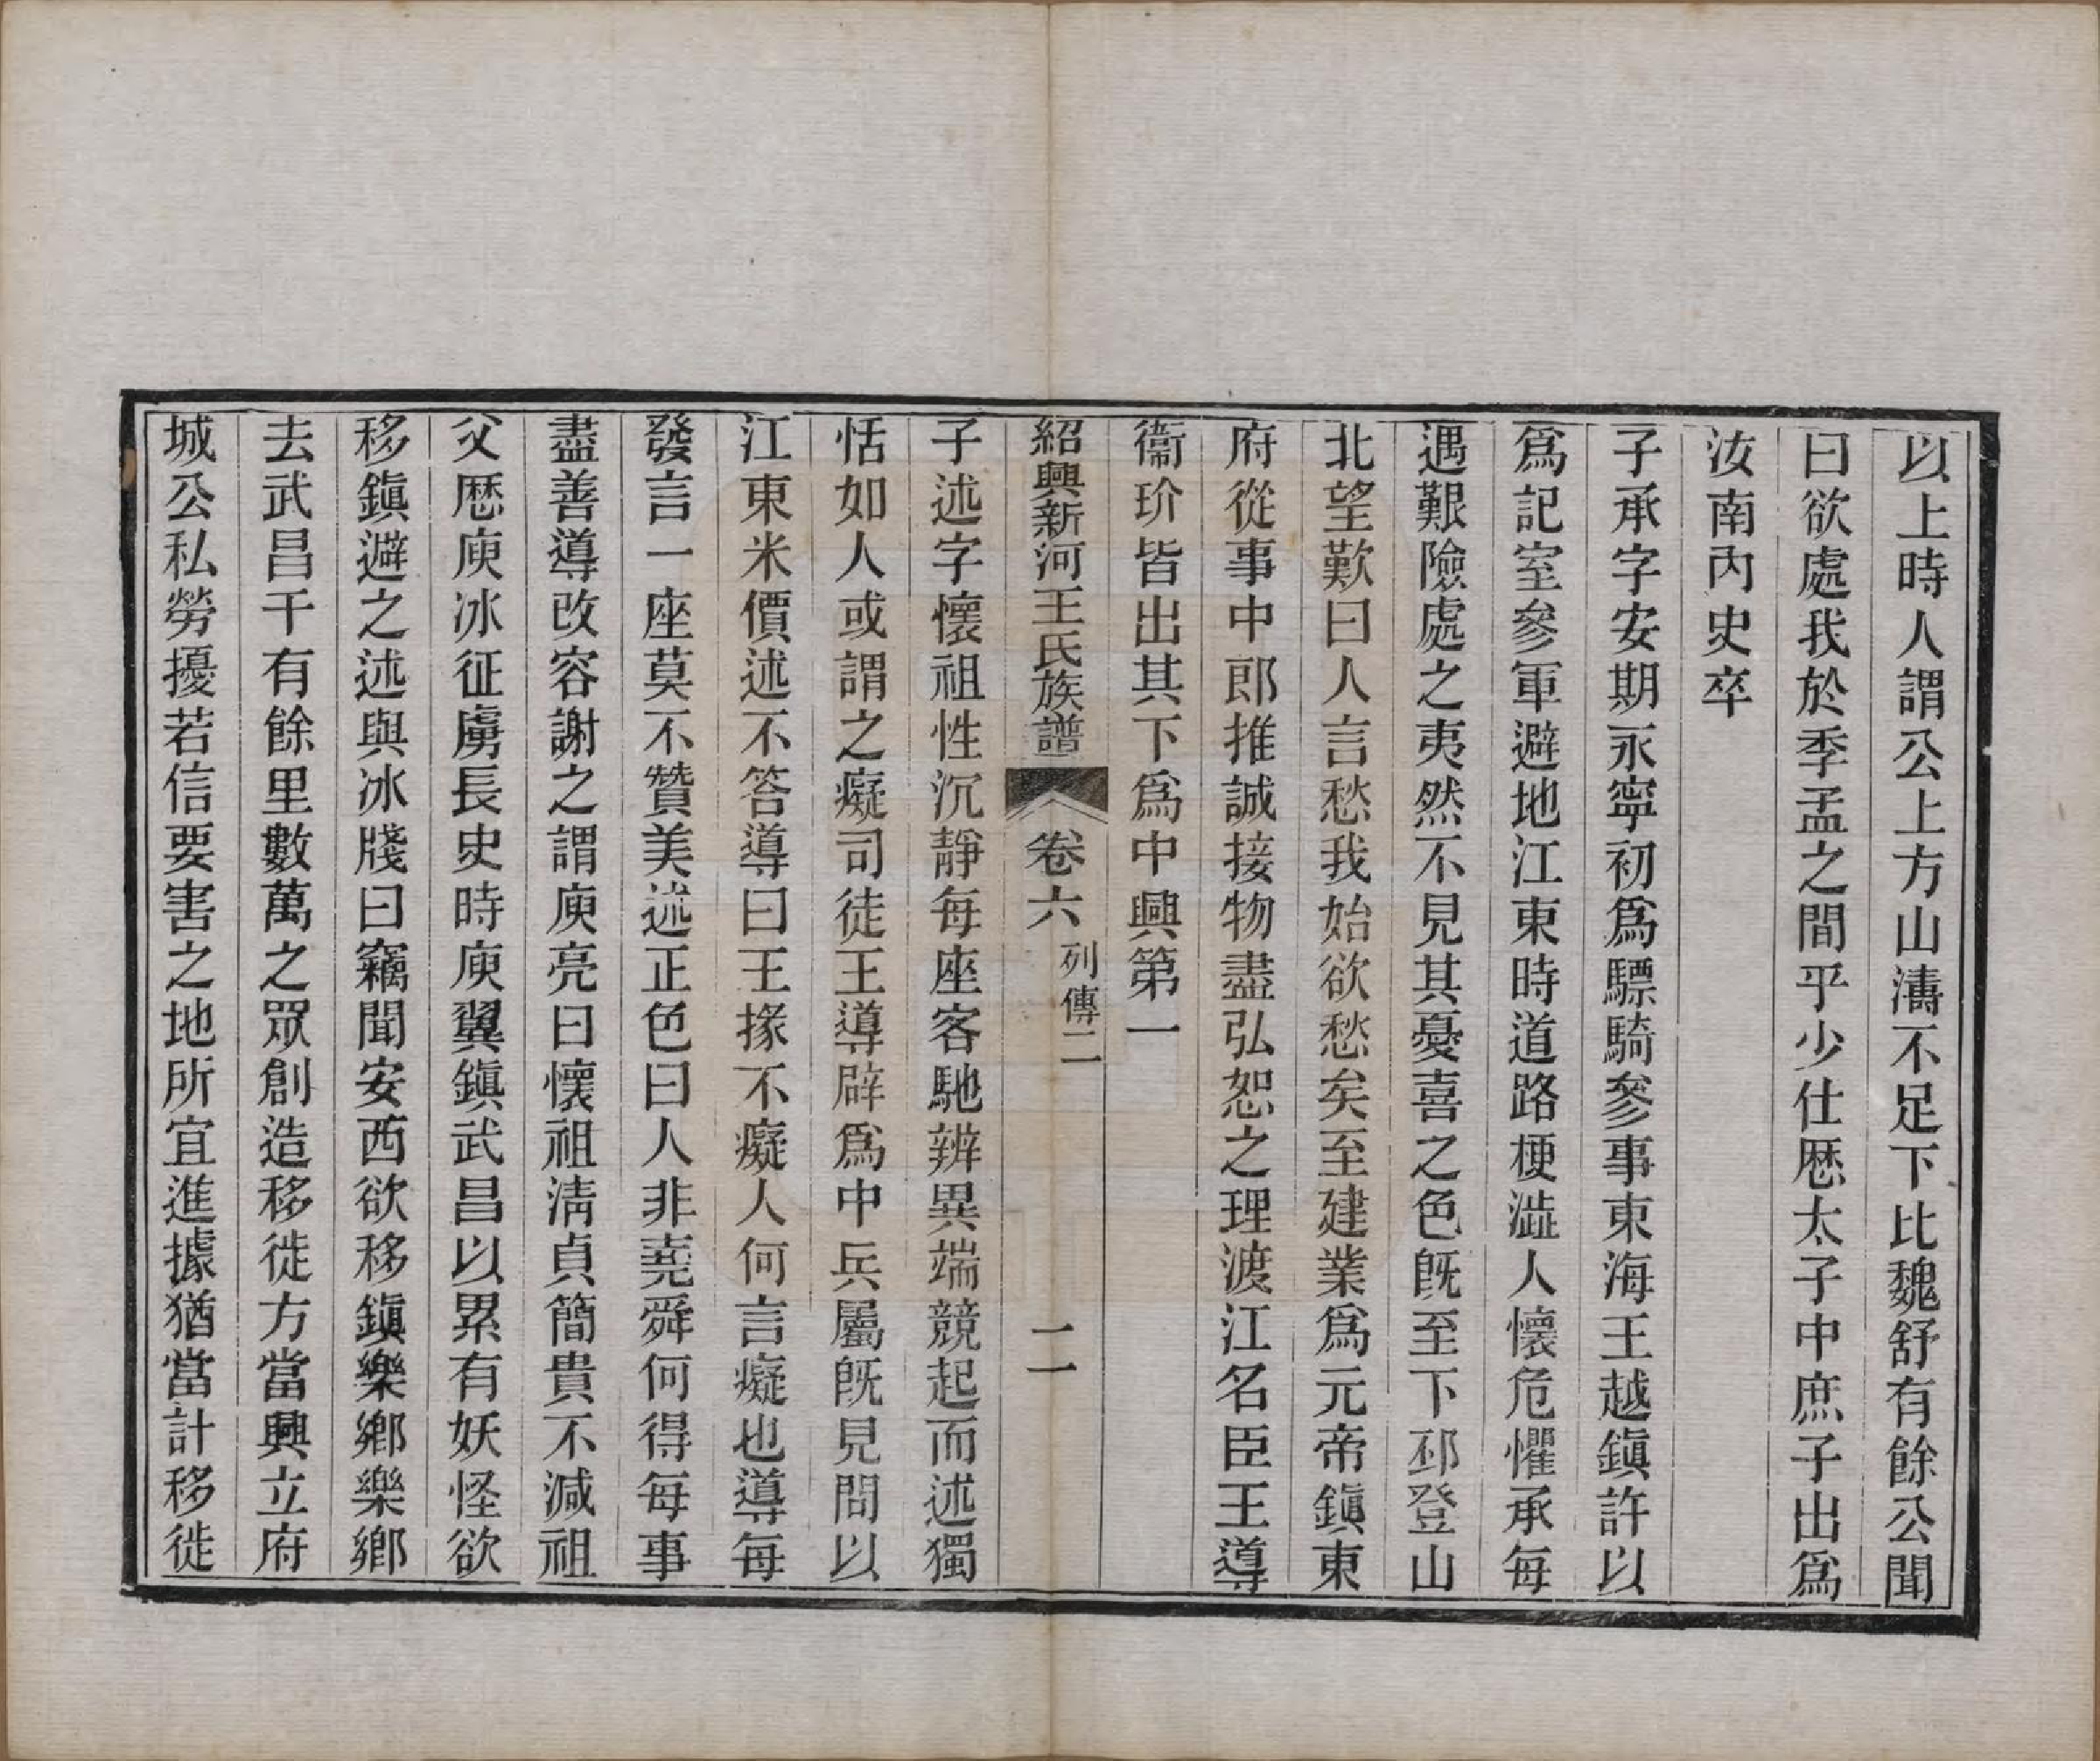 以上時人謂公上方山濤不足下比魏舒有餘公聞
曰欲處我於季孟之間乎少仕歷太子中庶子出爲
汝南內史卒
子承字安期永寧初爲驃騎參事東海王越鎮許以
爲記室參軍避地江東時道路梗澁人懷危懼承每
遇艱險處之夷然不見其憂喜之色旣至下邳登山
北望歎曰人言愁我始欲愁矣至建業爲元帝鎮東
府從事中郎推誠接物盡弘恕之理渡江名臣王導
衞玠皆出其下爲中興第一
紹興新河王氏族譜 卷六 列傳二 二
子述字懷祖性沉靜每座客馳辨異端競起而述獨
恬如人或謂之癡司徒王導辟爲中兵屬旣見問以
江東米價述不答導曰王掾不癡人何言癡也導每
發言一座莫不贊美述正色曰人非堯舜何得每事
盡善導改容謝之謂庾亮曰懷祖淸貞簡貴不減祖
父歷庾冰征虜長史時庾翼鎮武昌以累有妖怪欲
移鎭避之述與冰牋曰竊聞安西欲移鎭樂鄉樂鄉
去武昌千有餘里數萬之眾創造移徙方當興立府
城公私勞擾若信要害之地所宜進據猶當計移徙